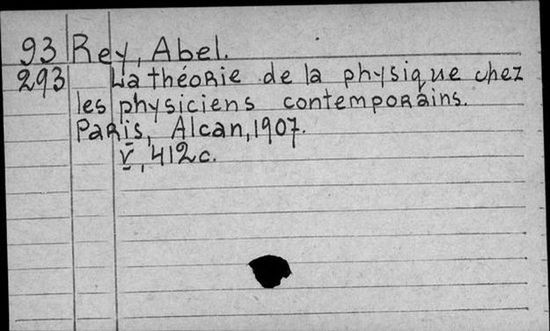 93 Rey, Abel.
293 La théorie de la physique chez
les physiciens contemporains.
Paris, Alcan, 1907.
V, 412c.